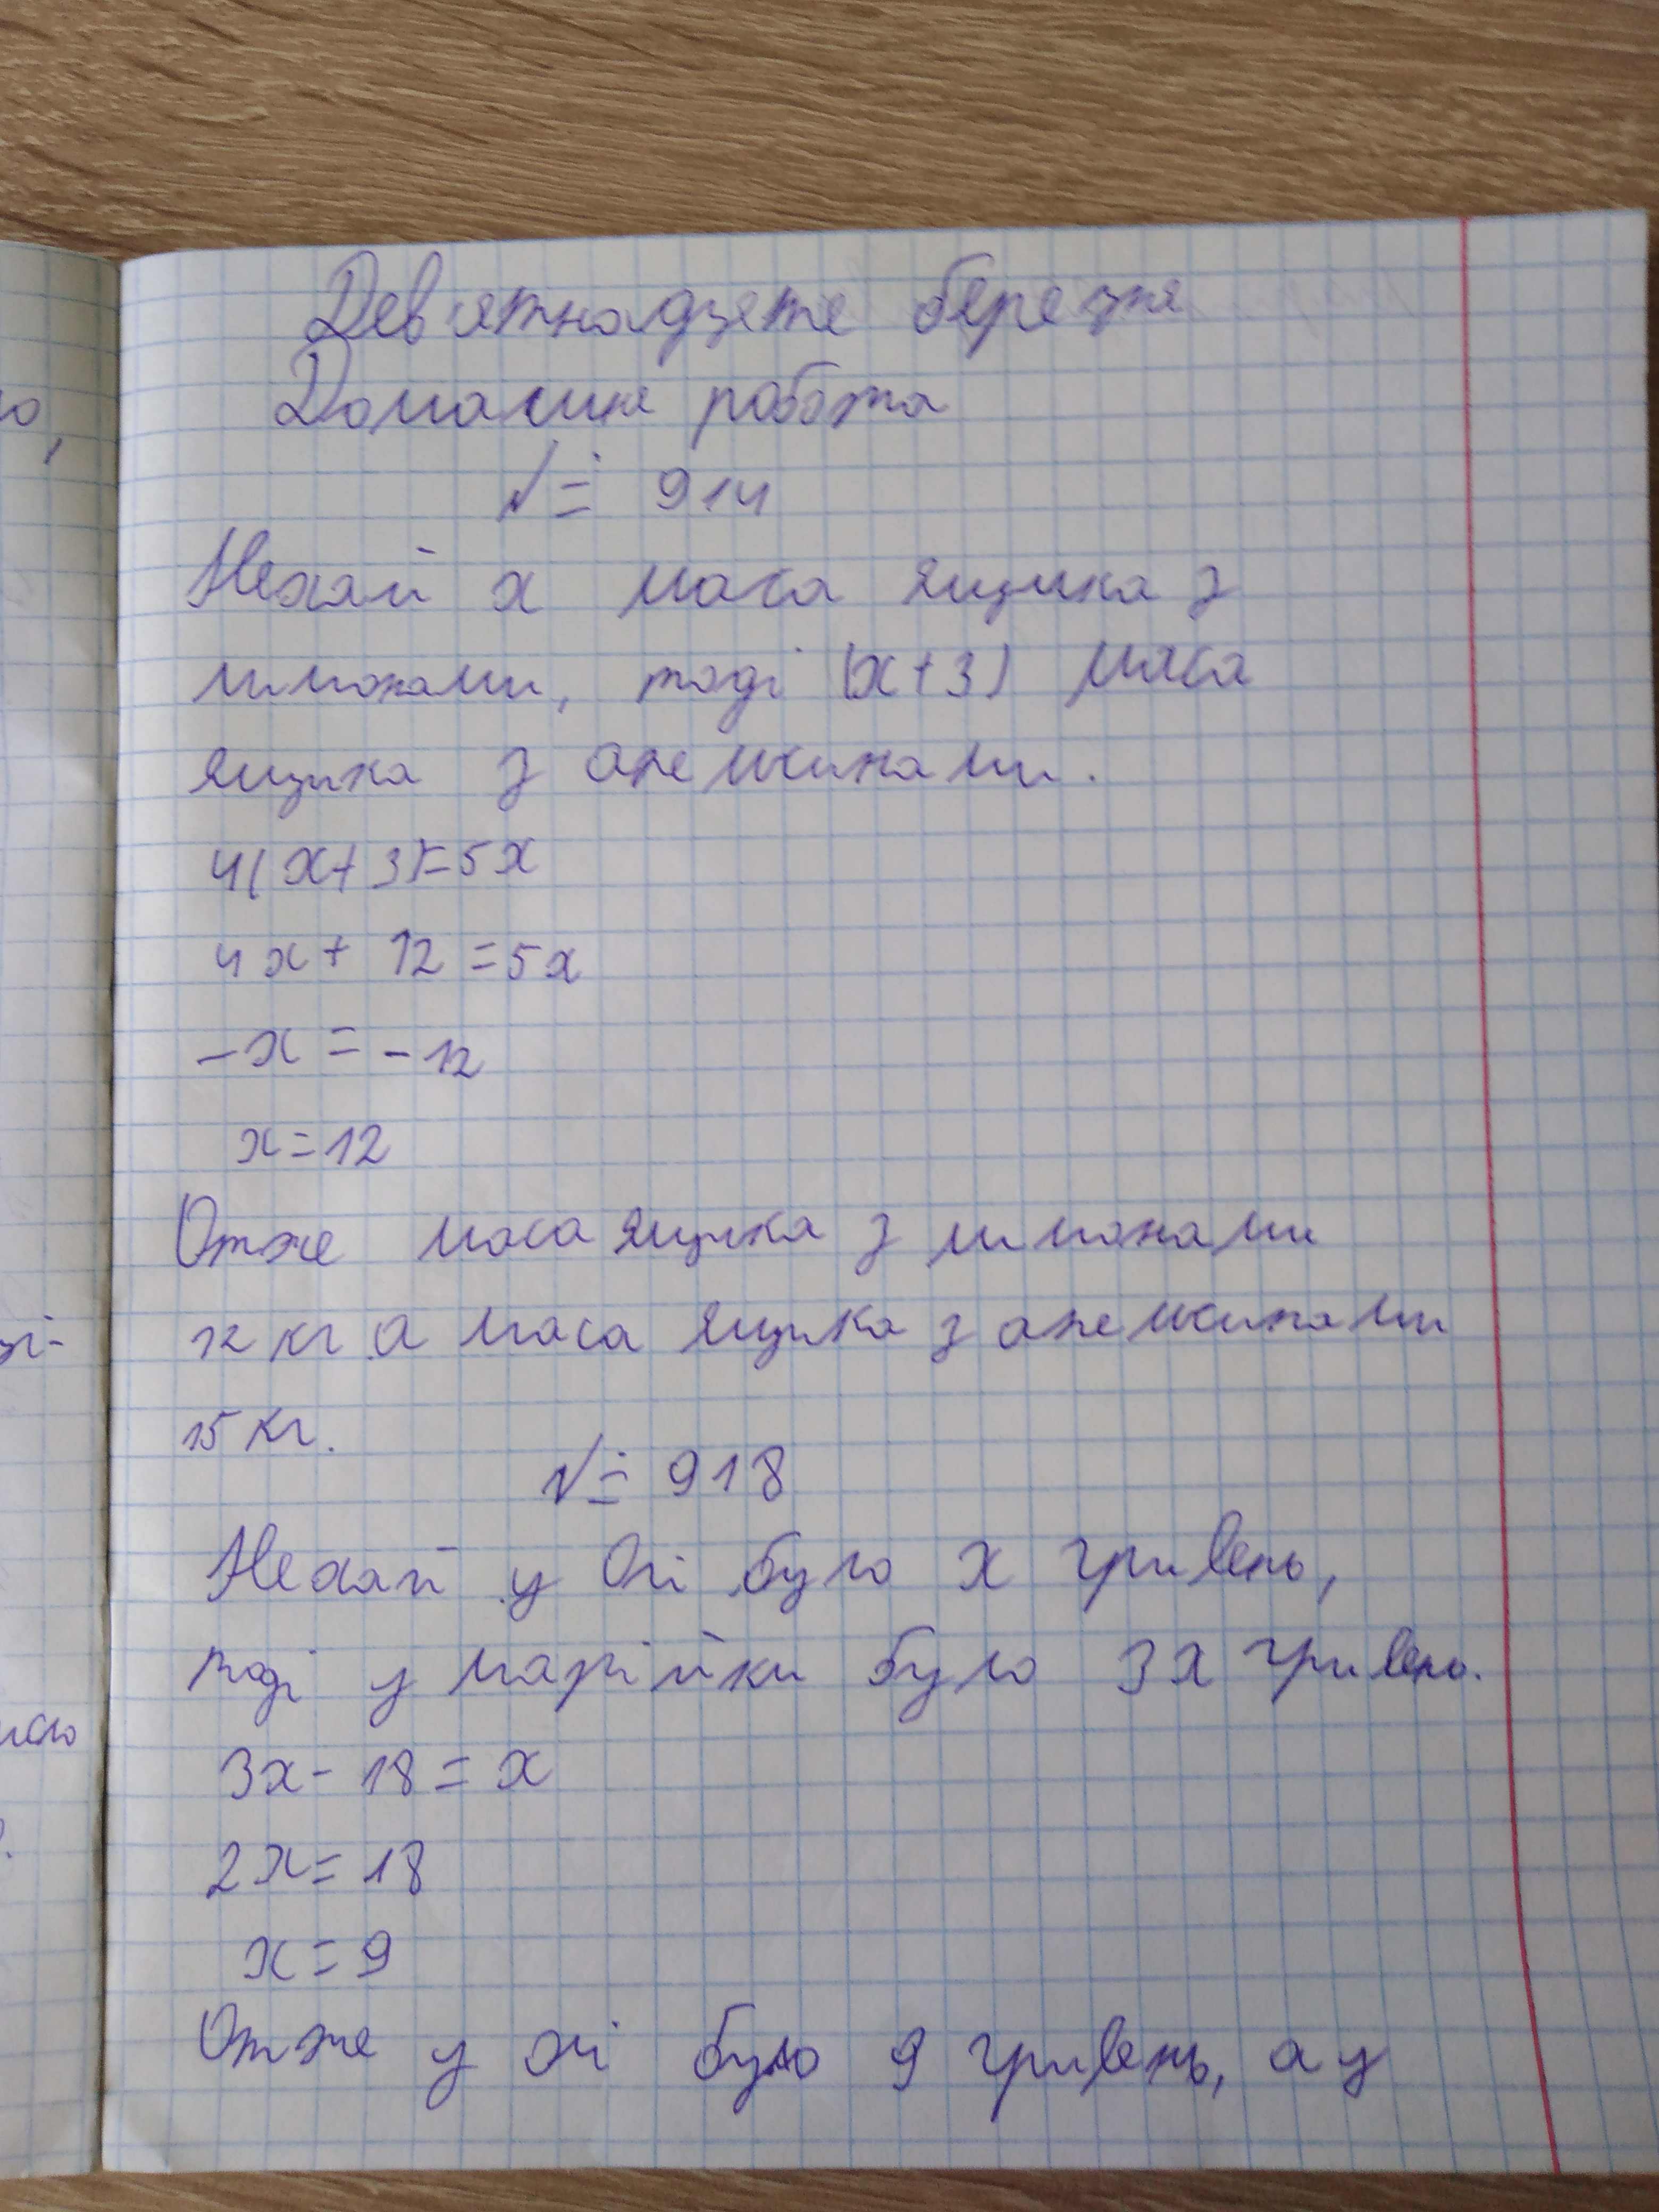 Дев'ятнадцяте березня
Домашня робота
№ 914
Нехай x маса ящика з
лимонами, тоді (x+3) маса
ящика з апельсинами.
4(x+3)=5x
4x+12=5x
-x=-12
x=12
Отже маса ящика з лимонами
12 кг а маса ящика з апельсинами
15 кг.
№ 918
Нехай у Олі було x гривень,
тоді у марійки було 3x гривень.
3x-18=x
2x=18
x=9
Отже у олі було 9 гривень, а у